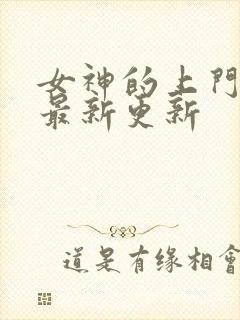 女神的上門
最新更新
道是有缘相會